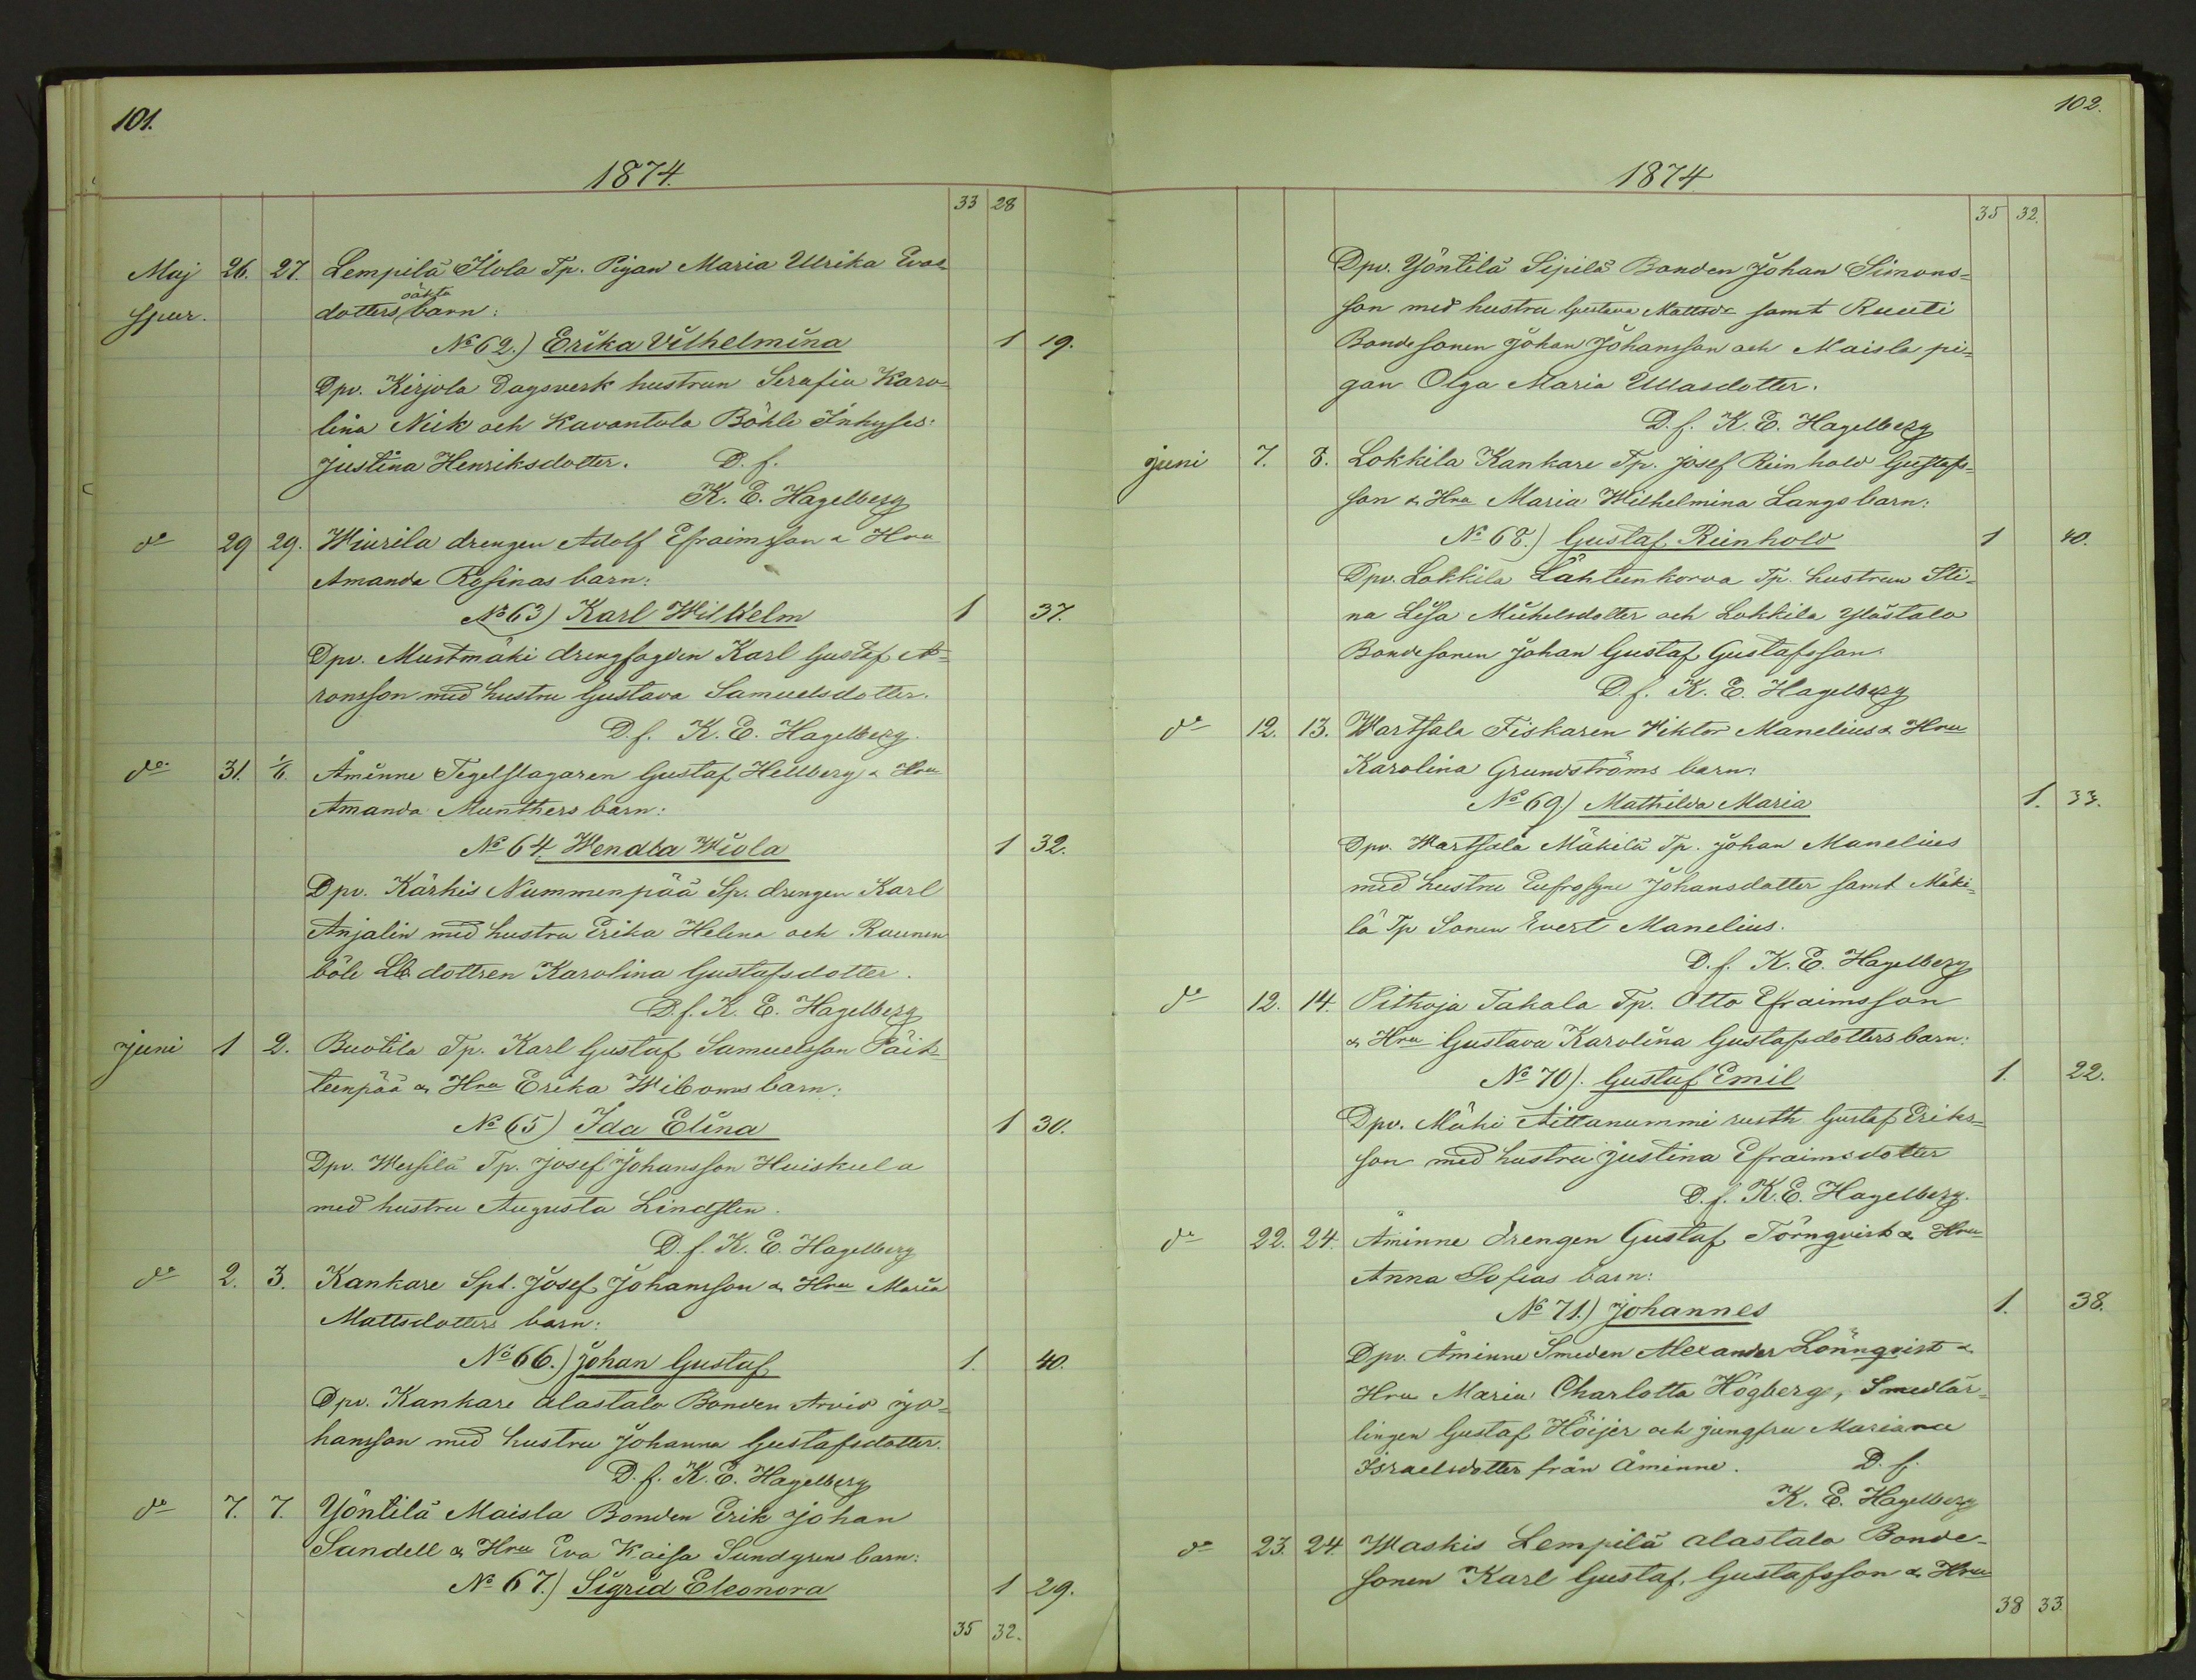 101.
1874.
33 28
Maj 26. 27. Lempilä Ilola Tp. Pigan Maria Ulrika Evas
spur. dotters oäkta barn:
No 62.) Erika Vilhelmina 1 19.
Dpv. Kirjola Dagsverk hustrun Serafia Karo-
lina Nick och Kavantola Böhle Inhyses:
Justina Henriksdotter. D. f.
K. E. Hagelberg
do 29 29. Wiurila drengen Adolf Efraimsson & Hru
Amanda Rosinas barn:
No 63) Karl Wilhelm 1 37.
Dpv. Mustmäki drengfogden Karl Gustaf A-
ronsson med hustru Gustava Samuelsdotter.
D. f. K. E. Hagelberg.
do 31. 1/6. Åminne Tegelslagaren Gustaf Hellberg & Hru
Amanda Munthers barn:
No 64. Wendla Wiola 1 32.
Dpv. Kärkis Nummenpää Sp. drengen Karl
Anjalin med hustru Erika Helena och Raunen
böle Lb dottren Karolina Gustafsdotter.
D. f. K. E. Hagelberg
Juni 1 2. Buotila Tp. Karl Gustaf Samuelsson Päit-
teenpää & Hru Erika Wiboms barn:
No 65) Ida Elina 1 30.
Dpv. Wessilä Tp. Josef Johansson Huiskula
med hustru Augusta Lindsten.
D. f. K. E. Hagelberg
do 2. 3. Kankare Spt. Josef Johansson & Hru Maria
Mattsdotters barn:
No 66.) Johan Gustaf 1. 40.
Dpv. Kankare Alastalo Bonden Arvid Jo-
hansson med hustru Johanna Gustafsdotter.
D. f. K. E. Hagelberg
do 7. 7. Yöntilä Maisla Bonden Erik Johan
Sandell & Hru Eva Kaisa Sundgrens barn:
No 67.) Sigrid Eleonora 1 29.
35 32.
102.
1874
35 32.
Dpv. Yöntilä Sipilä Bonden Johan Simons-
son med hustru Gustava Mattsdr samt Ruuti
Bondesonen Johan Johansson och Maisla pi-
gan Olga Maria Ullasdotter.
D. f. K. E. Hagelberg
Juni 7. 8. Lokkila Kankare Tp. Josef Reinhold Gustafs-
son & Hru Maria Wilhelmina Langs barn:
No 68.) Gustaf Reinhold 1 40.
Dpv. Lokkila Lähteenkorva Tp. hustrun Sti-
na Lisa Michelsdotter och Lokkila Ylöstalo
Bondesonen Johan Gustaf Gustafsson.
D. f. K. E. Hagelberg
do 12. 13. Wartsala Fiskaren Viktor Manelius & Hru
Karolina Grundströms barn:
No 69.) Mathilda Maria 1. 33.
Dpv. Wartsala Mäkilä Tp. Johan Manelius
med hustru Eufrosyne Johansdotter samt Mäki-
lä Tp Sonen Evert Manelius.
D. f. K. E. Hagelberg
do 12. 14. Pitkoja Takala Tp. Otto Efraimsson
& Hru Gustava Karolina Gustafsdotters barn:
No 70). Gustaf Emil 1. 22.
Dpv. Mäki Aittanummi rusth. Gustaf Eriks-
son med hustru Justina Efraimsdotter
D. f. K. E. Hagelberg.
do 22. 24. Åminne drengen Gustaf Törnqvist & Hru
Anna Sofias barn:
No 71.) Johannes 1. 38.
Dpv. Åminne Smeden Alexander Lönnqvist &
Hru Maria Charlotta Högberg, Smedlär-
lingen Gustaf Höijer och jungfru Mariana
Israelsdotter från Åminne. D. f.
K. E. Hagelberg
do 23. 24. Waskis Lempilä Alastalo Bonde-
sonen Karl Gustaf Gustafsson & Hru
38 33.